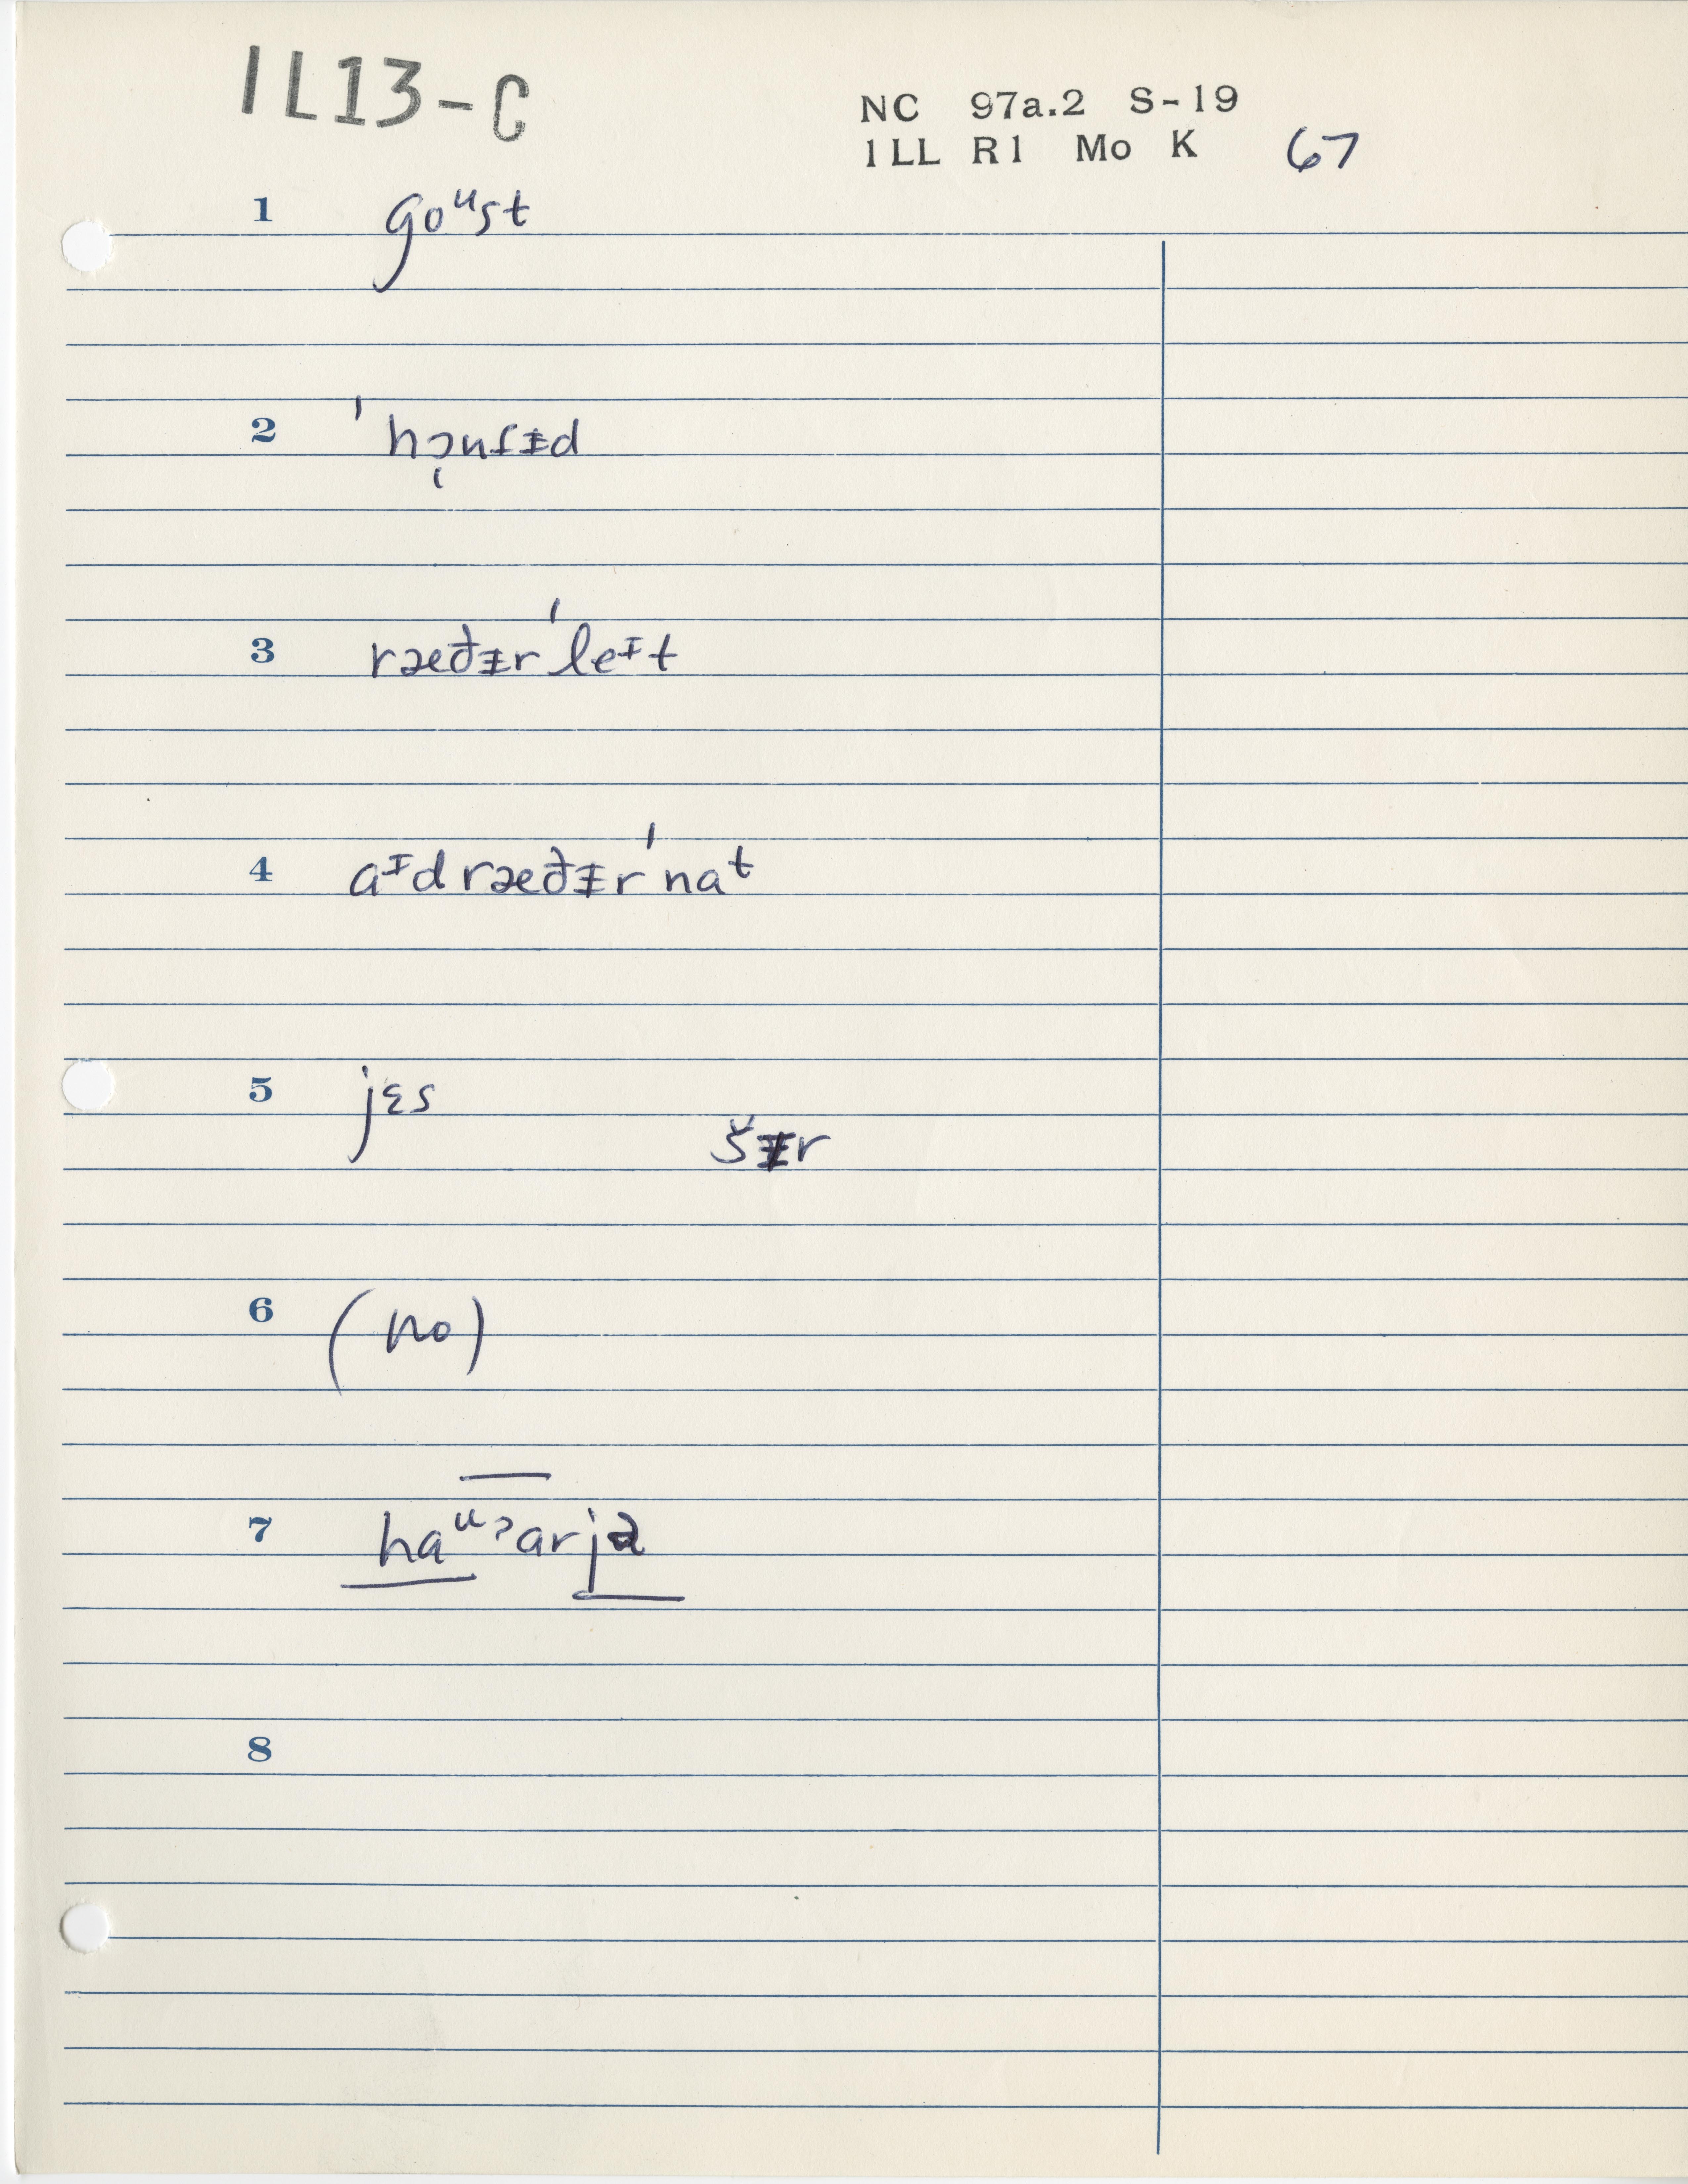 IL13-C
NC 97a.2 S-19
ILL R1 Mo K 67
1 goᵘst
2 ˈhɔ̨ntᵻd
3 ræðᵻrˈleᶦt
4 aᶦd ræðᵻrˈnaᵗ
5 jɛs
šᵻr
6 (no)
7 haᵘˀarjə
8